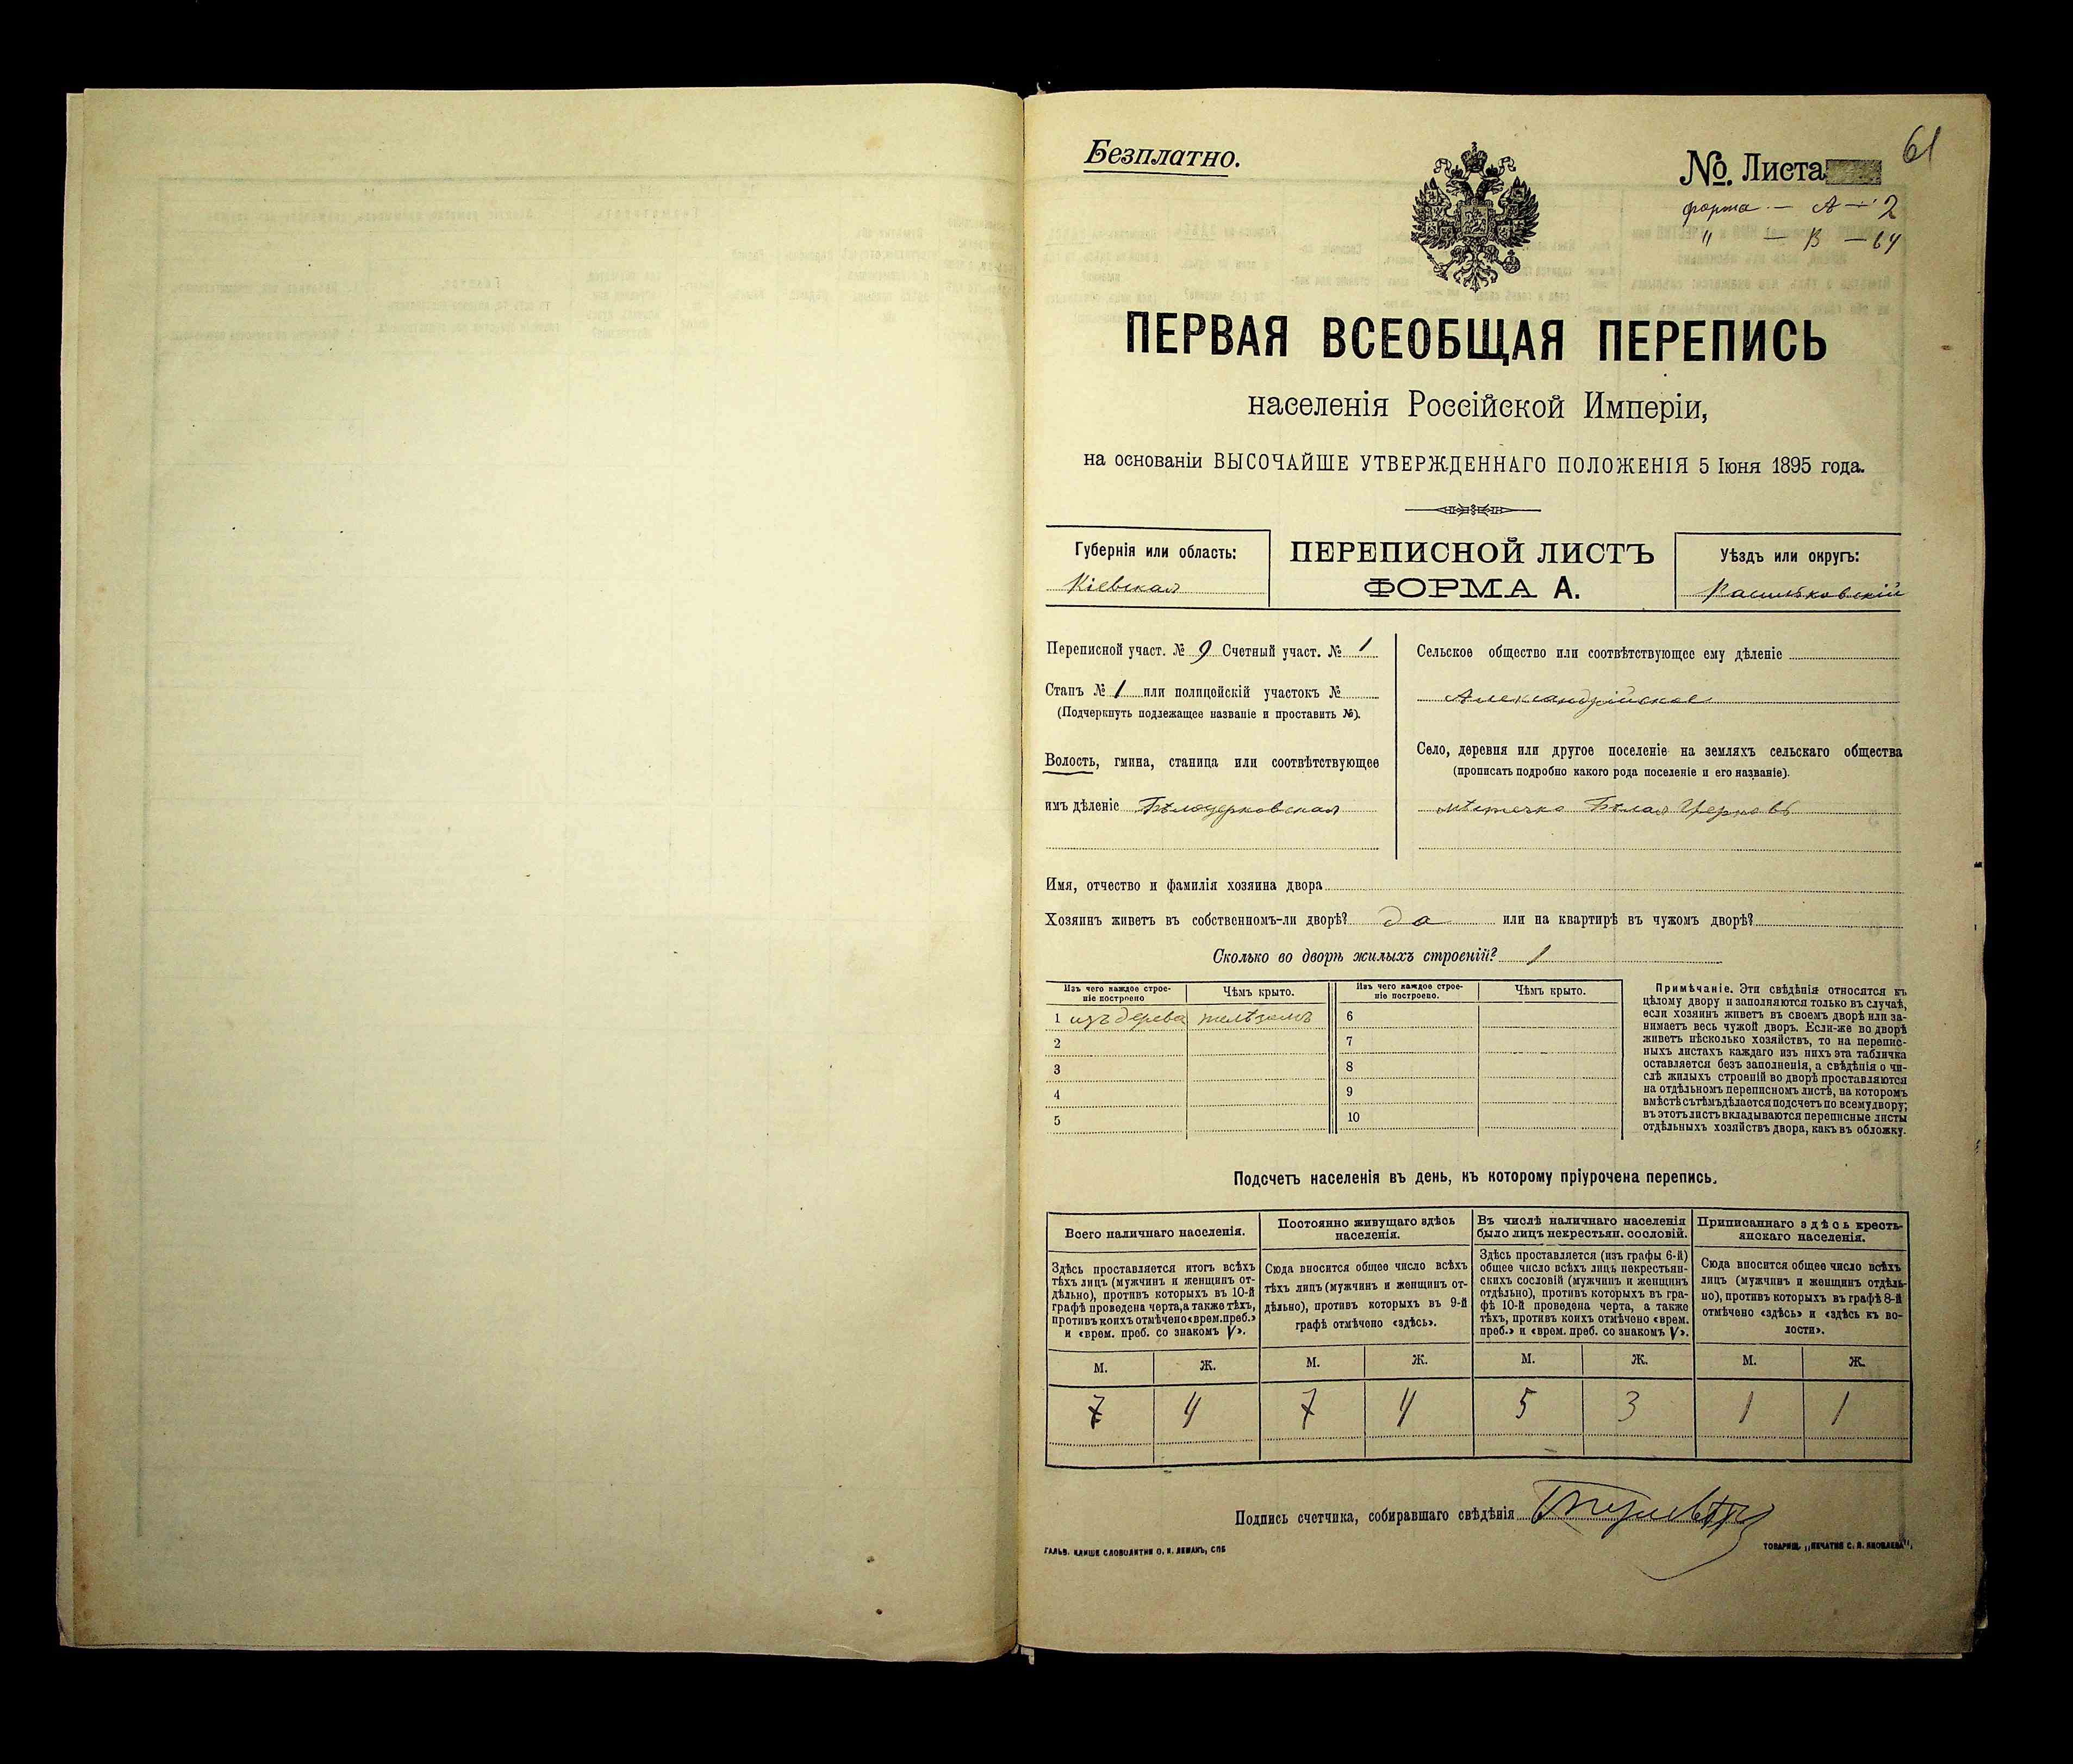 61
Безплатно.
№. Листа
форма — А — 2
" — В — 64
ПЕРВАЯ ВСЕОБЩАЯ ПЕРЕПИСЬ
населенія Россійской Имперіи,
на основаніи ВЫСОЧАЙШЕ УТВЕРЖДЕННАГО ПОЛОЖЕНІЯ 5 Іюня 1895 года.
Губернія или область:
Кіевская
ПЕРЕПИСНОЙ ЛИСТЪ
ФОРМА А.
Уѣздъ или округъ:
Васильковскій
Переписной участ. № 9 Счетный участ. № 1
Станъ № 1 или полицейскій участокъ №
(Подчеркнуть подлежащее названіе и проставить №).
Волость, гмина, станица или соотвѣтствующее
имъ дѣленіе Бѣлоцерковская
Сельское общество или соотвѣтствующее ему дѣленіе
Александрійское
Село, деревня или другое поселеніе на земляхъ сельскаго общества
(прописать подробно какого рода поселеніе и его названіе).
мѣстечко Бѣлая Церковь
Имя, отчество и фамилія хозяина двора
Хозяинъ живетъ въ собственномъ-ли дворѣ? да или на квартирѣ въ чужомъ дворѣ?
Сколько во дворѣ жилыхъ строеній? 1
Изъ чего каждое строе-
ніе построено
Чѣмъ крыто.
1 изъ дерева желѣзомъ
2
3
4
5
Изъ чего каждое строе-
ніе построено.
Чѣмъ крыто.
6
7
8
9
10
Примѣчаніе. Эти свѣдѣнія относятся къ
цѣлому двору и заполняются только въ случаѣ,
если хозяинъ живетъ въ своемъ дворѣ или за-
нимаетъ весь чужой дворъ. Если-же во дворѣ
живетъ нѣсколько хозяйствъ, то на перепис-
ныхъ листахъ каждаго изъ нихъ эта табличка
оставляется безъ заполненія, а свѣдѣнія о чи-
слѣ жилыхъ строеній во дворѣ проставляются
на отдѣльномъ переписномъ листѣ, на которомъ
вмѣстѣ съ тѣмъ дѣлается подсчетъ по всему двору;
въ этотъ листъ вкладываются переписные листы
отдѣльныхъ хозяйствъ двора, какъ въ обложку.
Подсчетъ населенія въ день, къ которому пріурочена перепись.
Всего наличнаго населенія.
Здѣсь проставляется итогъ всѣхъ
тѣхъ лицъ (мужчинъ и женщинъ от-
дѣльно), противъ которыхъ въ 10-й
графѣ проведена черта, а также тѣхъ,
противъ коихъ отмѣчено «врем. преб.»
и «врем. преб. со знакомъ V».
Постоянно живущаго здѣсь
населенія.
Сюда вносится общее число всѣхъ
тѣхъ лицъ (мужчинъ и женщинъ от-
дѣльно), противъ которыхъ въ 9-й
графѣ отмѣчено «здѣсь».
Въ числѣ наличнаго населенія
было лицъ некрестьян. сословій.
Здѣсь проставляется (изъ графы 6-й)
общее число всѣхъ лицъ некрестьян-
скихъ сословій (мужчинъ и женщинъ
отдѣльно), противъ которыхъ въ гра-
фѣ 10-й проведена черта, а также
тѣхъ, противъ коихъ отмѣчено «врем.
преб.» и «врем. преб. со знакомъ V».
Приписаннаго здѣсь кресть-
янскаго населенія.
Сюда вносится общее число всѣхъ
лицъ (мужчинъ и женщинъ отдѣль-
но), противъ которыхъ въ графѣ 8-й
отмѣчено «здѣсь» и «здѣсь къ во-
лости».
М. Ж. М. Ж. М. Ж. М. Ж.
7 4 7 4 5 3 1 1
Подпись счетчика, собиравшаго свѣдѣнія
ГАЛЬВ. КЛИШЕ СЛОВОЛИТНИ О. И. ЛЕМАНЪ, СПБ
ТОВАРИЩ. „ПЕЧАТНИ С. П. ЯКОВЛЕВА".